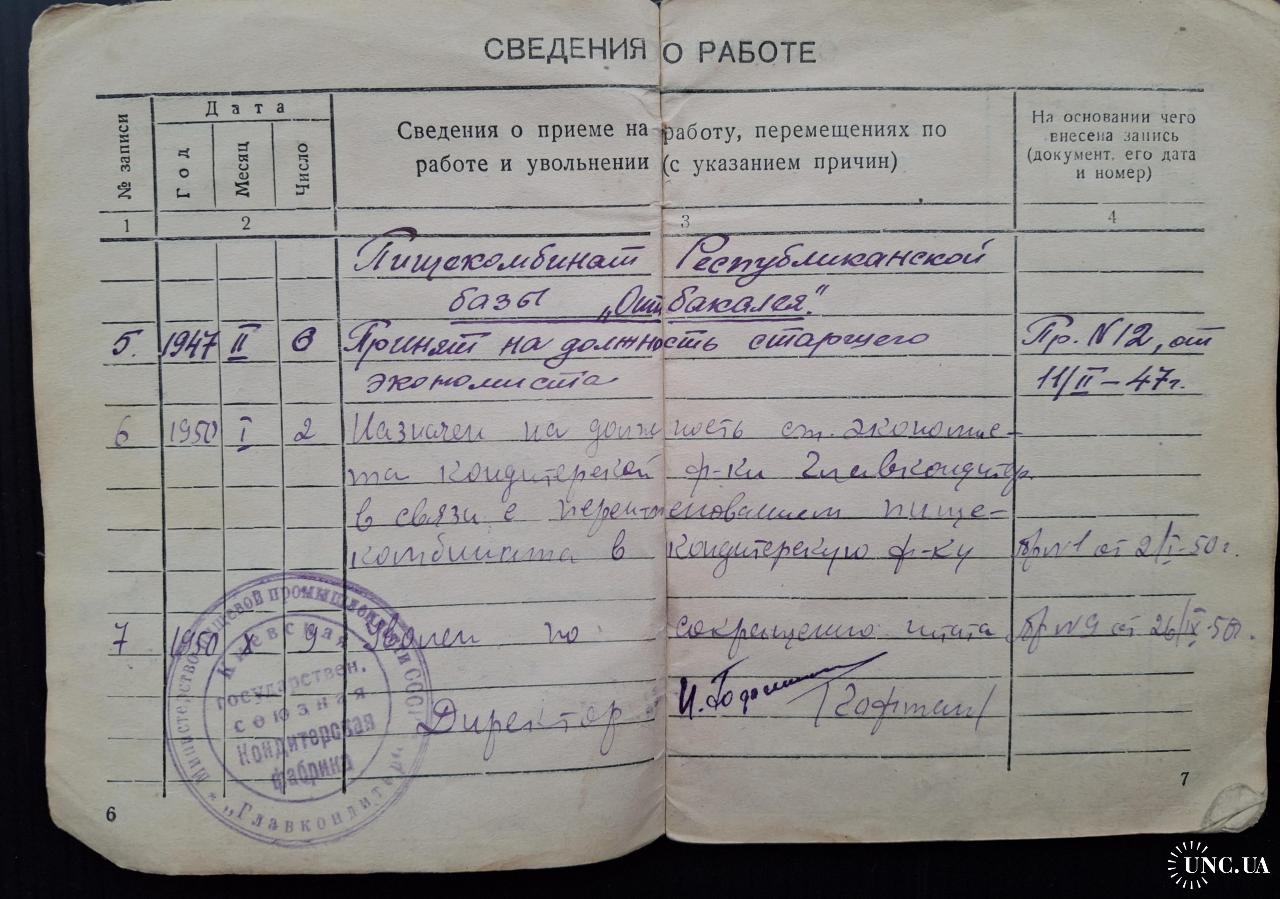 СВЕДЕНИЯ О РАБОТЕ
№ записи
Дата
Год
Месяц
Число
Сведения о приеме на работу, перемещениях по
работе и увольнении (с указанием причин)
На основании чего
внесена запись
(документ, его дата
и номер)
1 2 3 4
Пищекомбинат Республиканской
базы „Оптбакалея."
5. 1947 II 6 Принят на должность старшего Пр. N 12, от
экономиста 11/II – 47г.
6 1950 I 2 Назначен на должность ст. экономис-
та кондитерской ф-ки Главкондитер.
в связи с переименованием пище-
комбината в кондитерскую ф-ку пр N1 от 2/I-50г.
7 1950 X 9 Уволен по сокращению штата пр N9 от 26/IX-50г.
Директор (Гофман)
Министерство пищевой промышленности СССР
* „Главкондитер"
Киевская
государствен.
союзная
Кондитерская
фабрика
6
7
UNC.UA